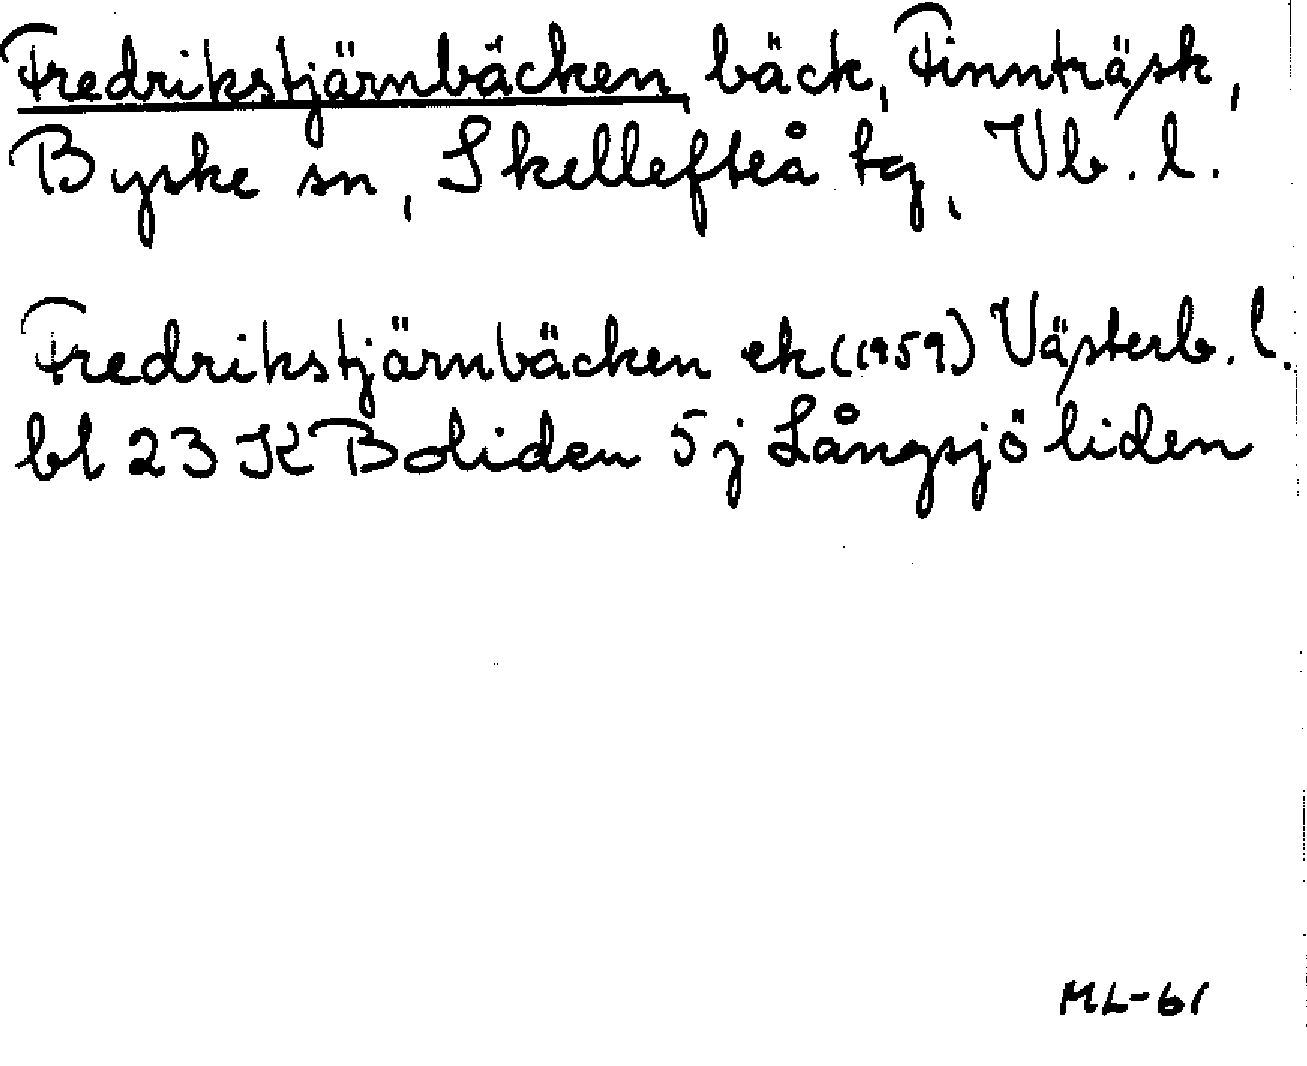 Fredrikstjärnbäcken, bäck, Finnträsk,
Byske sn, Skellefteå tg, Vb. l.
Fredrikstjärnbäcken ek (1959) Västerb. l.
bl 23 K Boliden 5 j Långsjöliden
ML-61